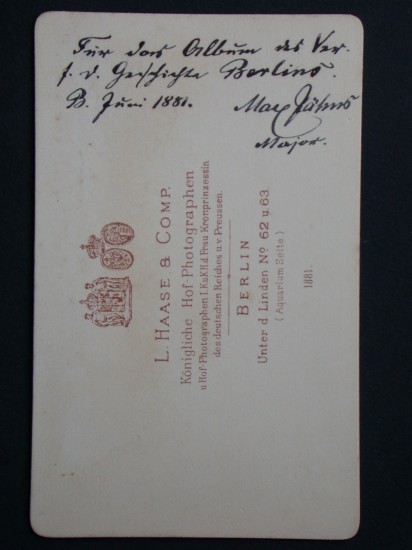 Für das Album des Ver.
f. d. Geschichte Berlins.
B. Juni 1881. Max Jähns
Major.
L. HAASE & COMP.
Königliche Hof-Photographen
u. Hof-Photographen I. K. u. K. H. d. Frau Kronprinzessin
des deutschen Reiches u. v. Preussen.
BERLIN
Unter d. Linden No. 62 u. 63.
(Aquarium Seite.)
1881.